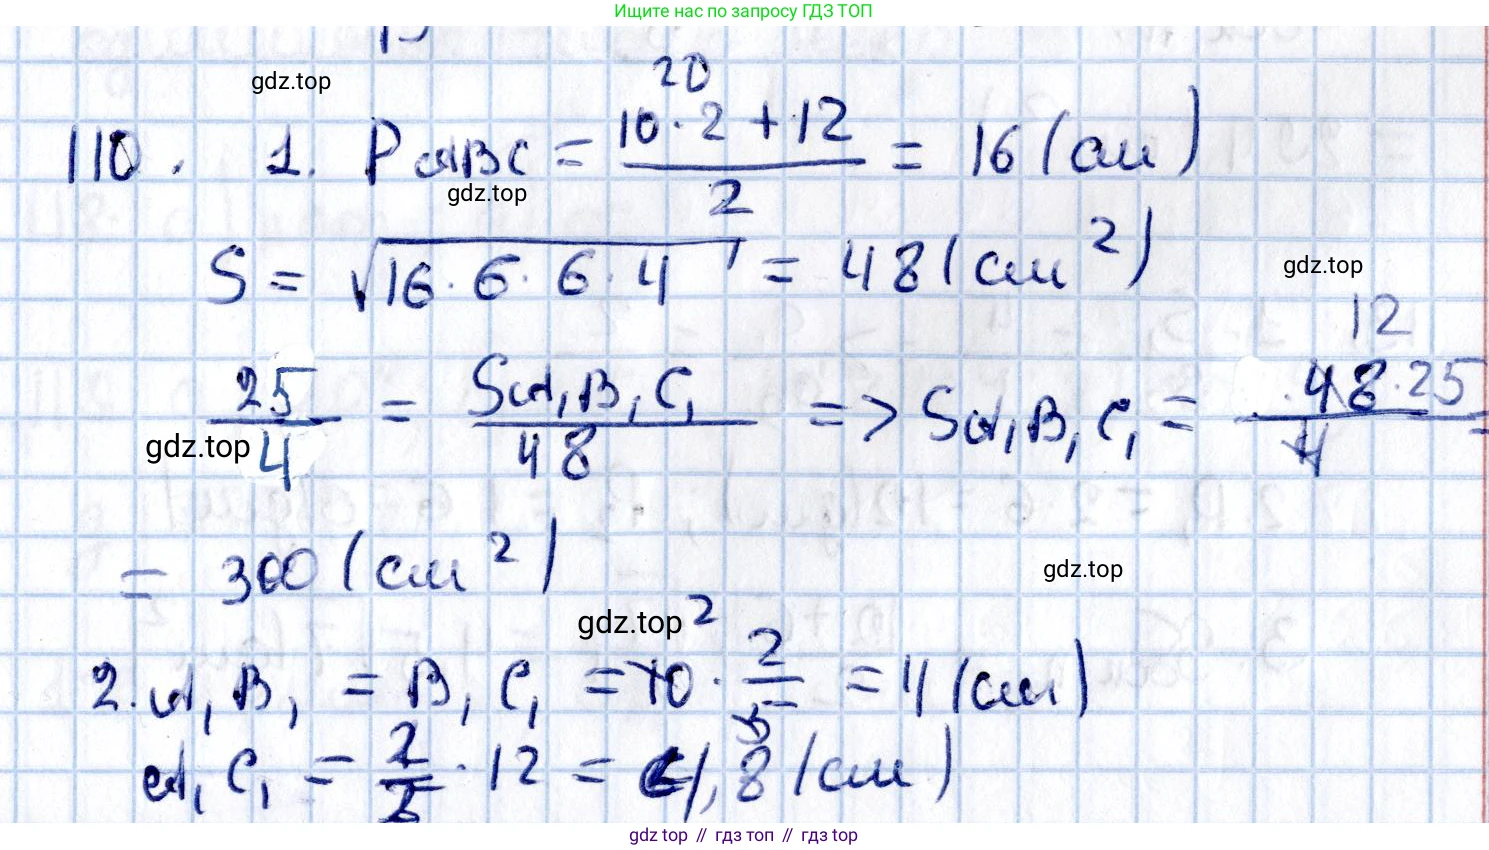 Ищите нас по запросу ГДЗ ТОП
gdz.top
20
110. 1. P ABC = (10·2+12)/2 = 16 (см)
gdz.top
S = √16·6·6·4 = 48 (см²)
gdz.top
12
25/4 = S A₁B₁C₁/48 => S A₁B₁C₁ = 48·25/4 =
gdz.top
= 300 (см²)
gdz.top
gdz.top
2
2. A₁B₁ = B₁C₁ = 10 · 2/5 = 4 (см)
A₁C₁ = 2/5 · 12 = 4,8 (см)
gdz.top // гдз топ // gdz.top